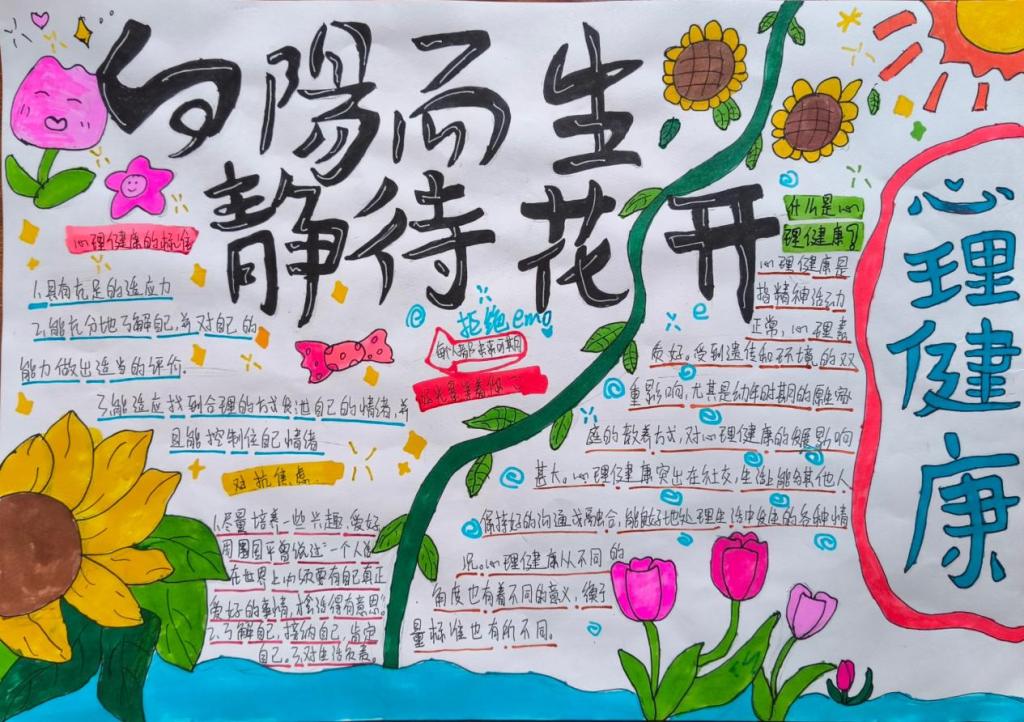 向陽而生
静待花开
心理健康
心理健康的标准
1.具有充足的适应力
2.能充分地了解自己,并对自己的
能力做出适当的评价.
3.能适应找到合理的方式发泄自己的情绪,并
且能控制住自己情绪
对抗焦虑
1.尽量培养一些兴趣,爱好
周国平曾说过“一个人活
在世界上必须要有自己真正
爱好的事情,才会活得有意思”
2.了解自己,接纳自己,肯定
自己。3.对生活负责。
拒绝emo
什么是心
理健康?
心理健康是
指精神活动
正常,心理素
质好。受到遗传和环境的双
重影响,尤其是幼年时期的原生家
庭的教养方式,对心理健康的发展影响
甚大。心理健康突出在社交,生活上能与其他人
保持好的沟通或融合,能做好地处理生活中发生的各种情
况。心理健康从不同的
角度也有着不同的意义,衡
量标准也有所不同。